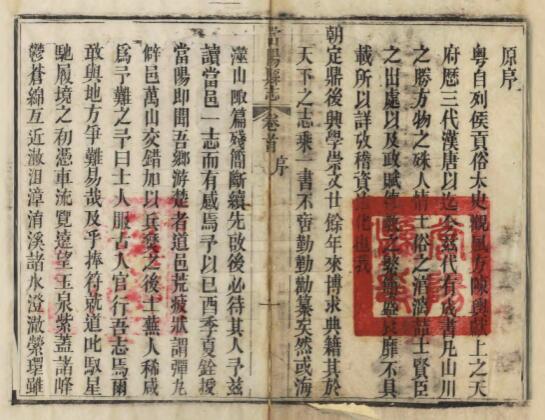 原序
粤自列侯貢俗太史觀風方陳輿獻上之天
府歷三代漢唐以迄今茲代有成書凡山川
之勝方物之殊人情土俗之淳漓喆士賢臣
之出處以及政賦 教之繁 靡不具
載所以詳攷稽資 化也我
朝定鼎後興學崇文廿餘年來博求典籍其於
天下之志乘一書不啻勤勤勸纂矣然或海
當陽縣志
卷首
序
一
澨山陬篇殘簡斷續先啟後必待其人予茲
讀當邑一志而有感焉予以己酉季夏銓授
當陽即聞吾鄉游楚者道邑荒疲狀謂彈丸
僻邑萬山交錯加以兵燹之後土蕪人稀咸
爲予難之予曰士人服古入官行吾志焉爾
敢與地方爭難易哉及乎捧符就道此馭星
馳履境之初憑車流覽遠望玉泉紫蓋諸峰
鬱蒼綿亙近漵沮漳淯溪諸水澄澈縈環雖